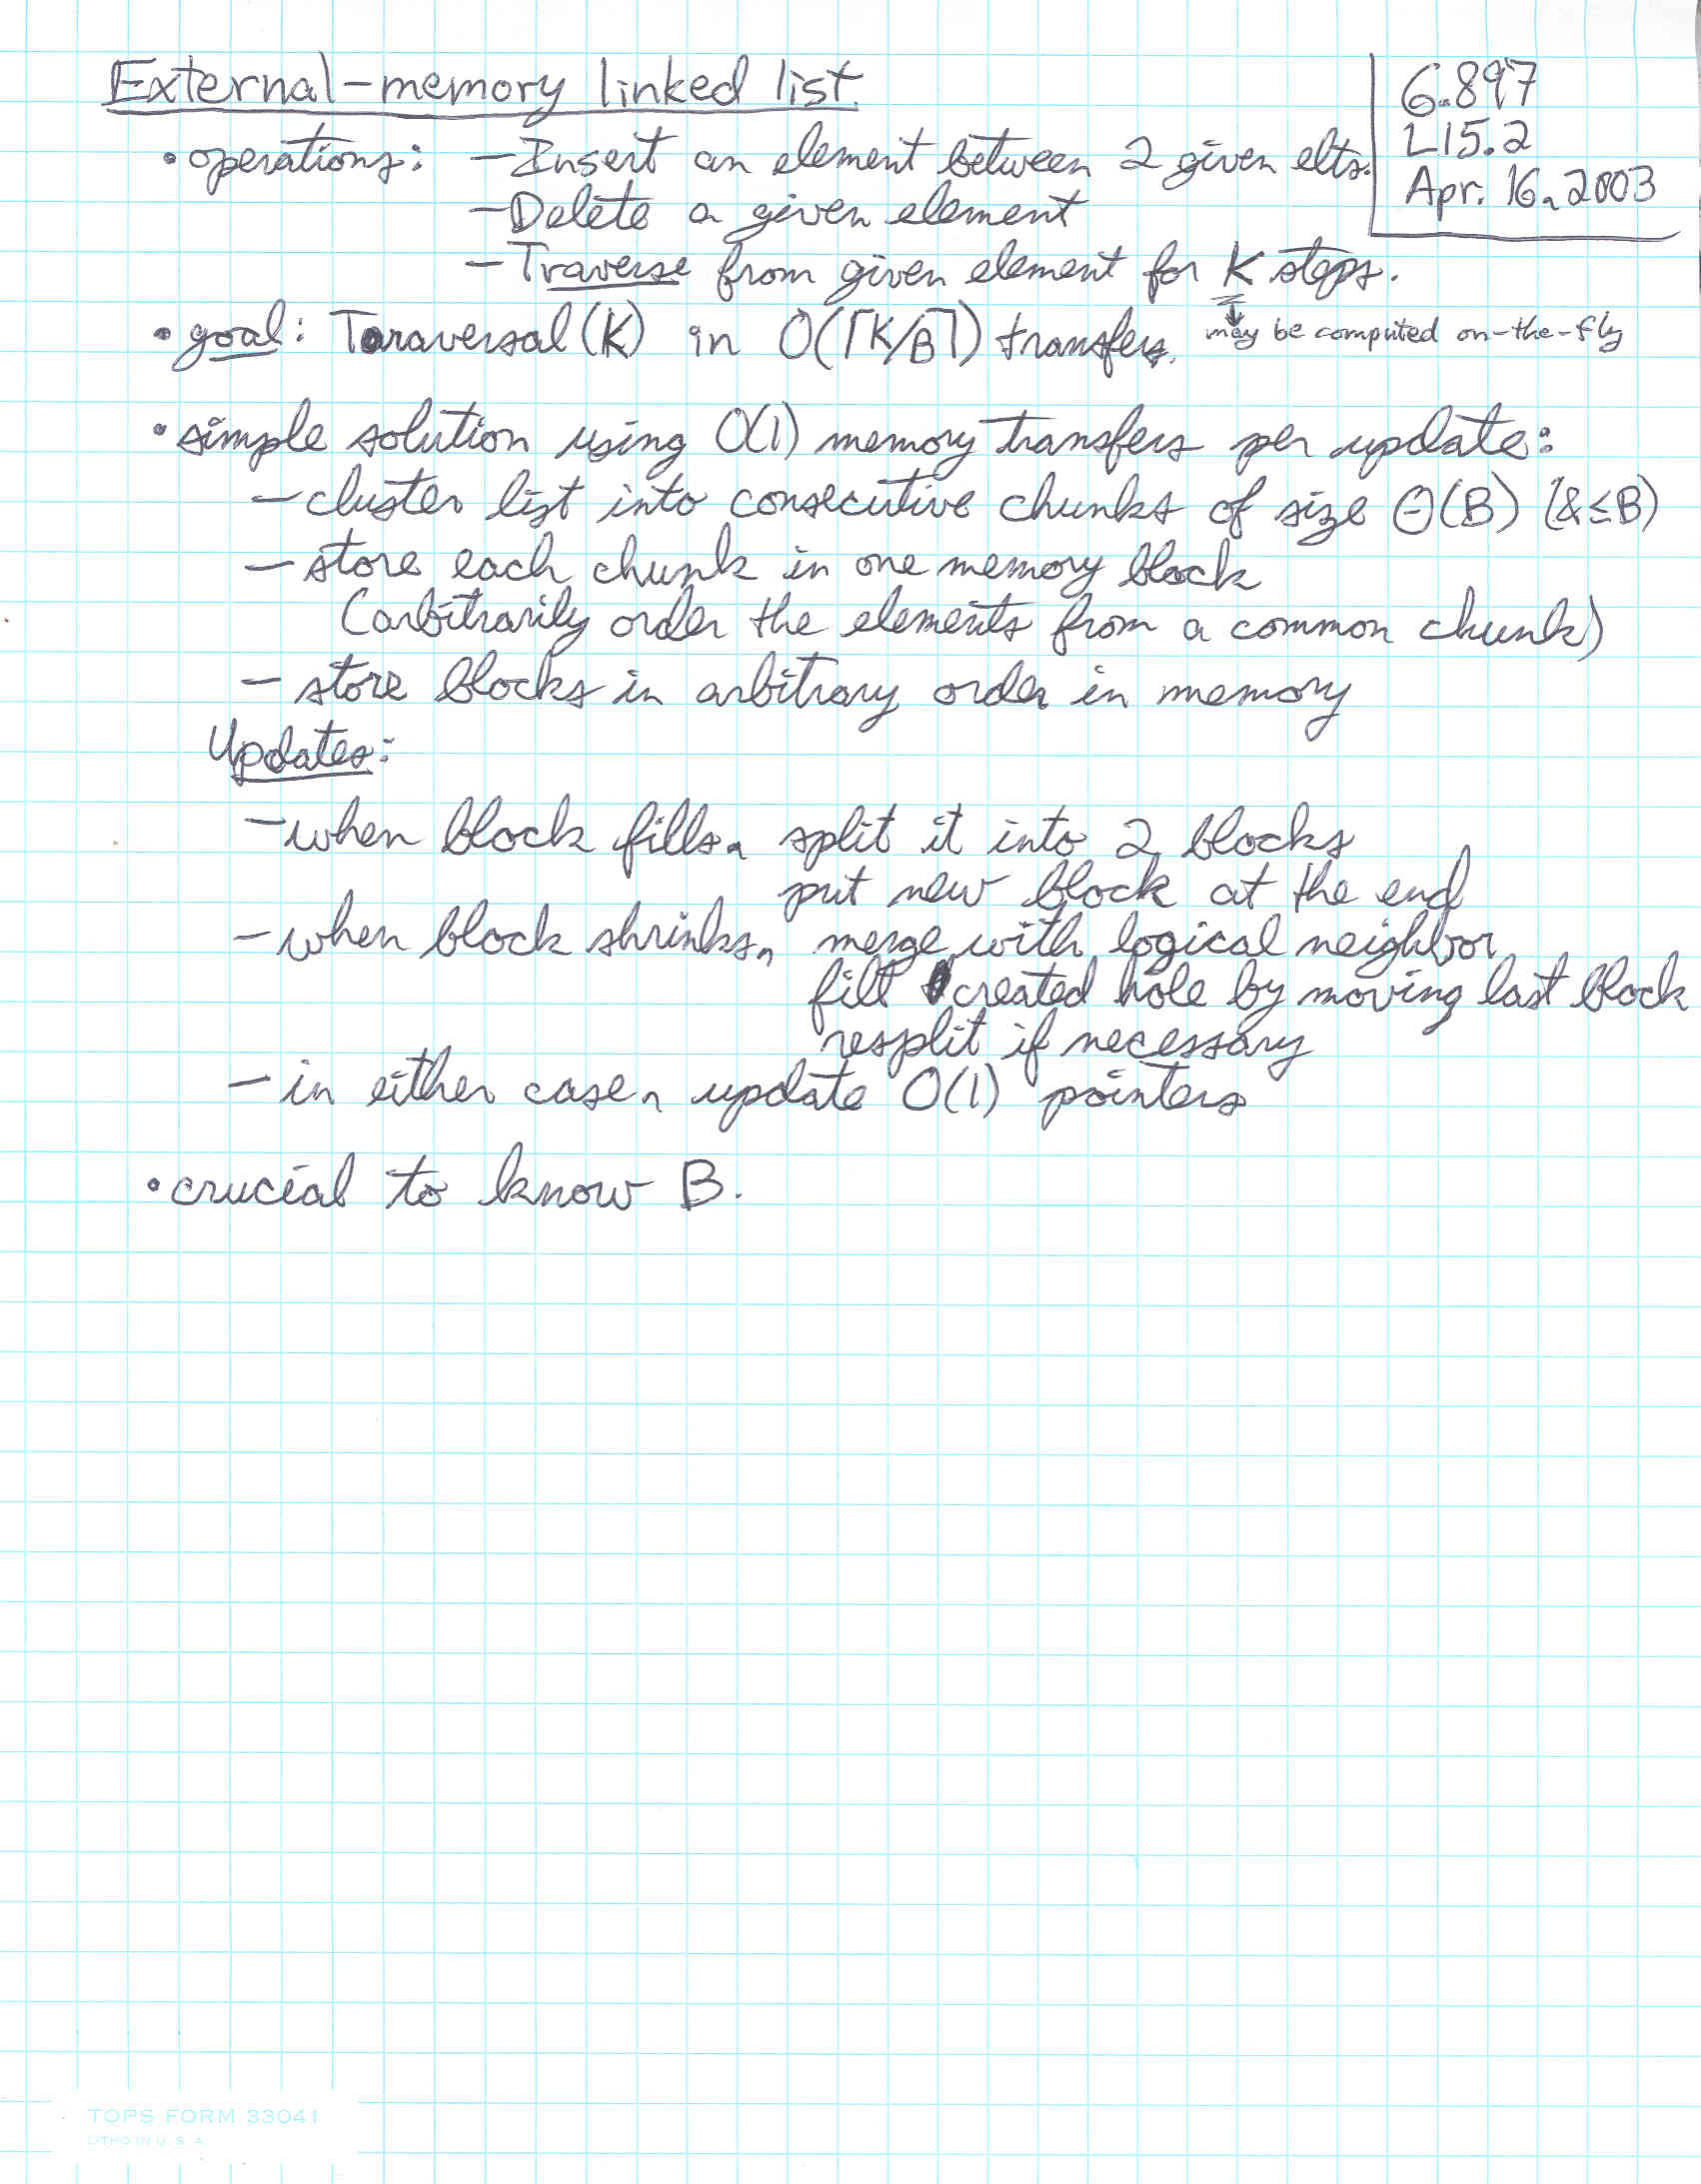 External-memory linked list
6.897
L15.2
Apr. 16, 2003
• operations: – Insert an element between 2 given elts.
– Delete a given element
– Traverse from given element for K steps.
may be computed on-the-fly
• goal: Traversal(K) in O(⌈K/B⌉) transfers.
• simple solution using O(1) memory transfers per update:
– cluster list into consecutive chunks of size Θ(B) (& ≤ B)
– store each chunk in one memory block
(arbitrarily order the elements from a common chunk)
– store blocks in arbitrary order in memory
Updates:
– when block fills, split it into 2 blocks
put new block at the end
– when block shrinks, merge with logical neighbor
fill created hole by moving last block
resplit if necessary
– in either case, update O(1) pointers
• crucial to know B.
TOPS FORM 33041
LITHO IN U.S.A.